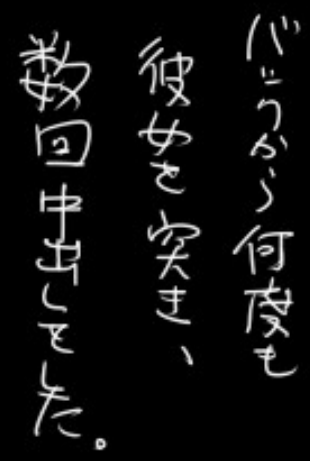 バックから何度も
彼女を突き、
数回中出しをした。